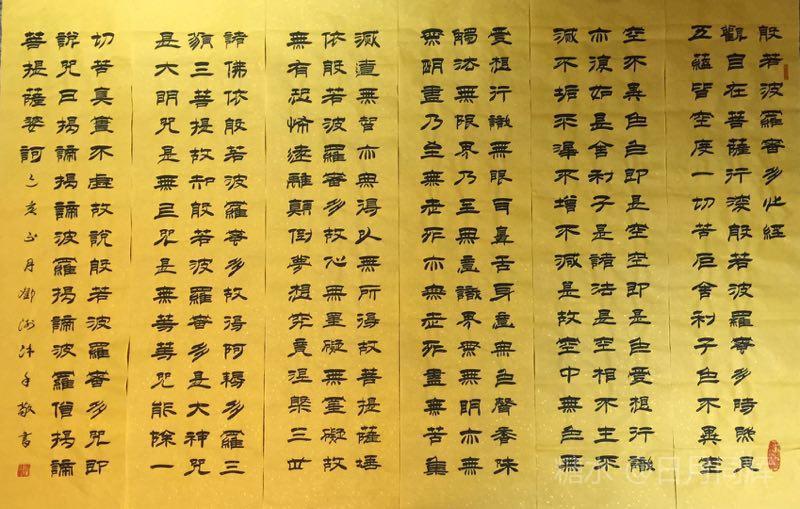 般若波羅蜜多心經
觀自在菩薩行深般若波羅蜜多時照見
五蘊皆空度一切苦厄舍利子色不異空
空不異色色即是空空即是色受想行識
亦復如是舍利子是諸法是空相不生不
滅不垢不淨不增不減是故空中無色無
受想行識無眼耳鼻舌身意無色聲香味
觸法無眼界乃至無意識界無無明亦無
無明盡乃至無老死亦無老死盡無苦集
滅道無智亦無得以無所得故菩提薩埵
依般若波羅蜜多故心無罣礙無罣礙故
無有恐怖遠離顛倒夢想究竟涅槃三世
諸佛依般若波羅蜜多故得阿耨多羅三
藐三菩提故知般若波羅蜜多是大神咒
是大明咒是無上咒是無等等咒能除一
切苦真實不虛故說般若波羅蜜多咒即
說咒曰揭諦揭諦波羅揭諦波羅僧揭諦
菩提薩婆訶 月 敬書
糖水@日月同